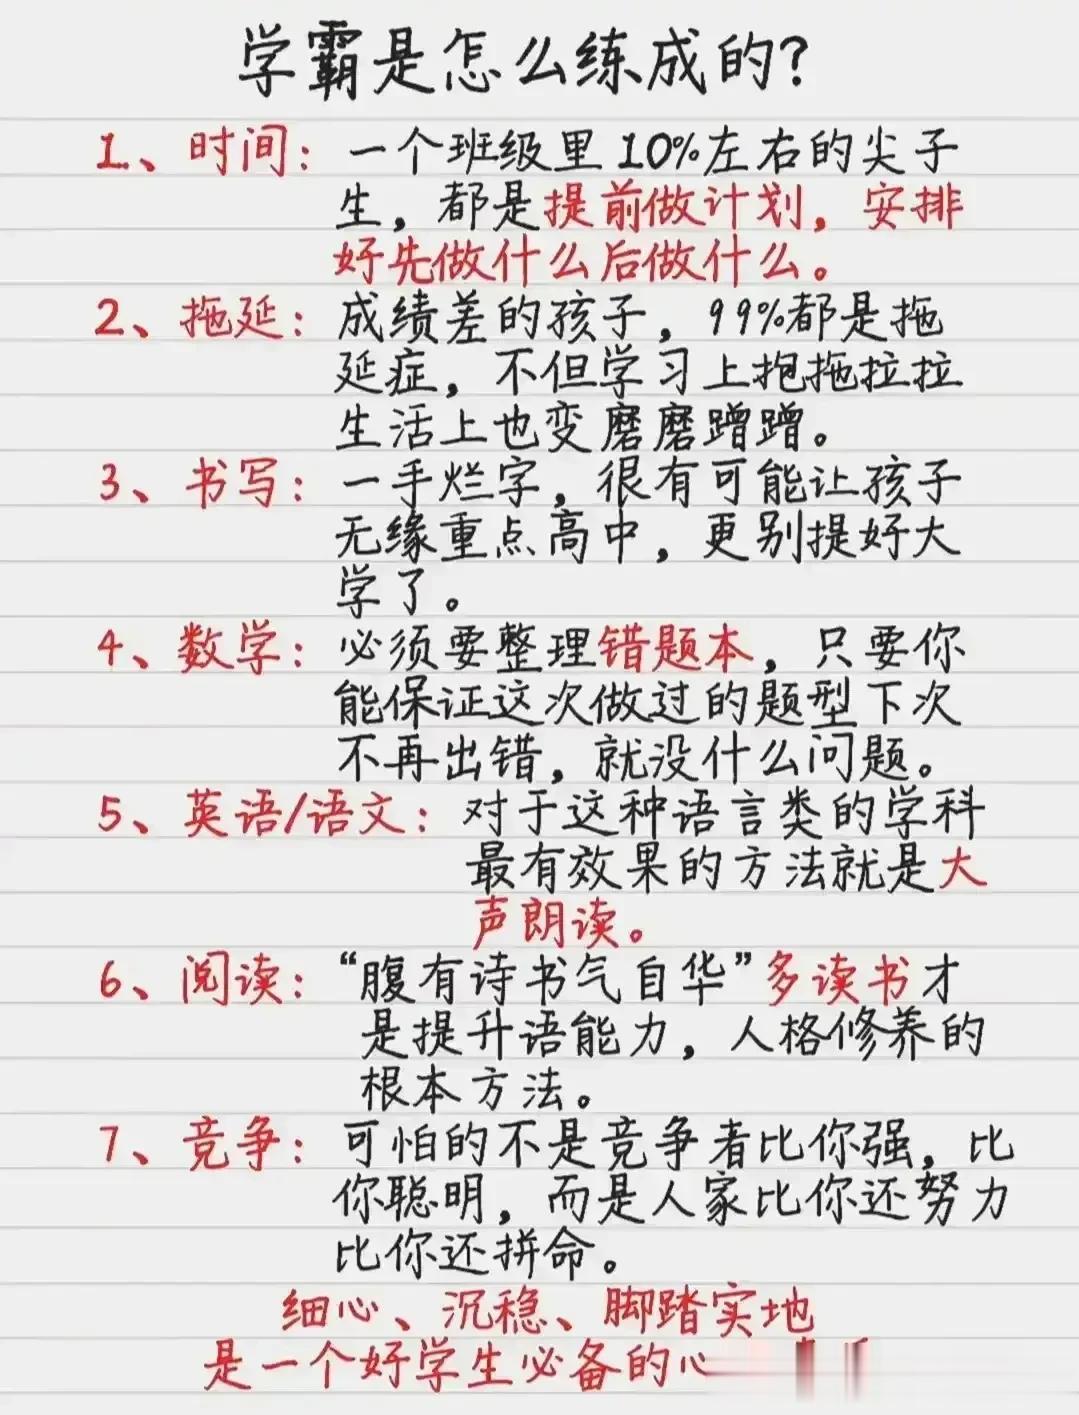 学霸是怎么练成的?
1、时间：一个班级里10%左右的尖子
生，都是提前做计划，安排
好先做什么后做什么。
2、拖延：成绩差的孩子，99%都是拖
延症，不但学习上抱拖拉拉
生活上也变磨磨蹭蹭。
3、书写：一手烂字，很有可能让孩子
无缘重点高中，更别提好大
学了。
4、数学：必须要整理错题本，只要你
能保证这次做过的题型下次
不再出错，就没什么问题。
5、英语/语文：对于这种语言类的学科
最有效果的方法就是大
声朗读。
6、阅读：“腹有诗书气自华”多读书才
是提升语能力，人格修养的
根本方法。
7、竞争：可怕的不是竞争者比你强，比
你聪明，而是人家比你还努力
比你还拼命。
细心、沉稳、脚踏实地
是一个好学生必备的心